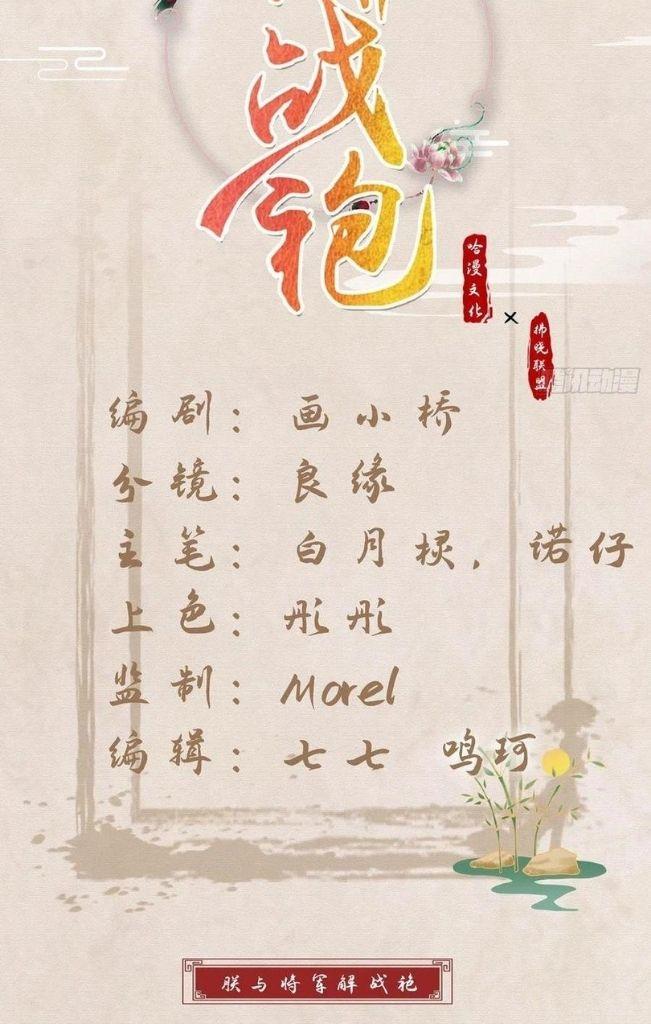 战
袍
哈漫文化
×
拂晓联盟
编剧：画小桥
分镜：良缘
主笔：白月椂，诺仔
上色：彤彤
监制：Morel
编辑：七七 鸣珂
朕与将军解战袍